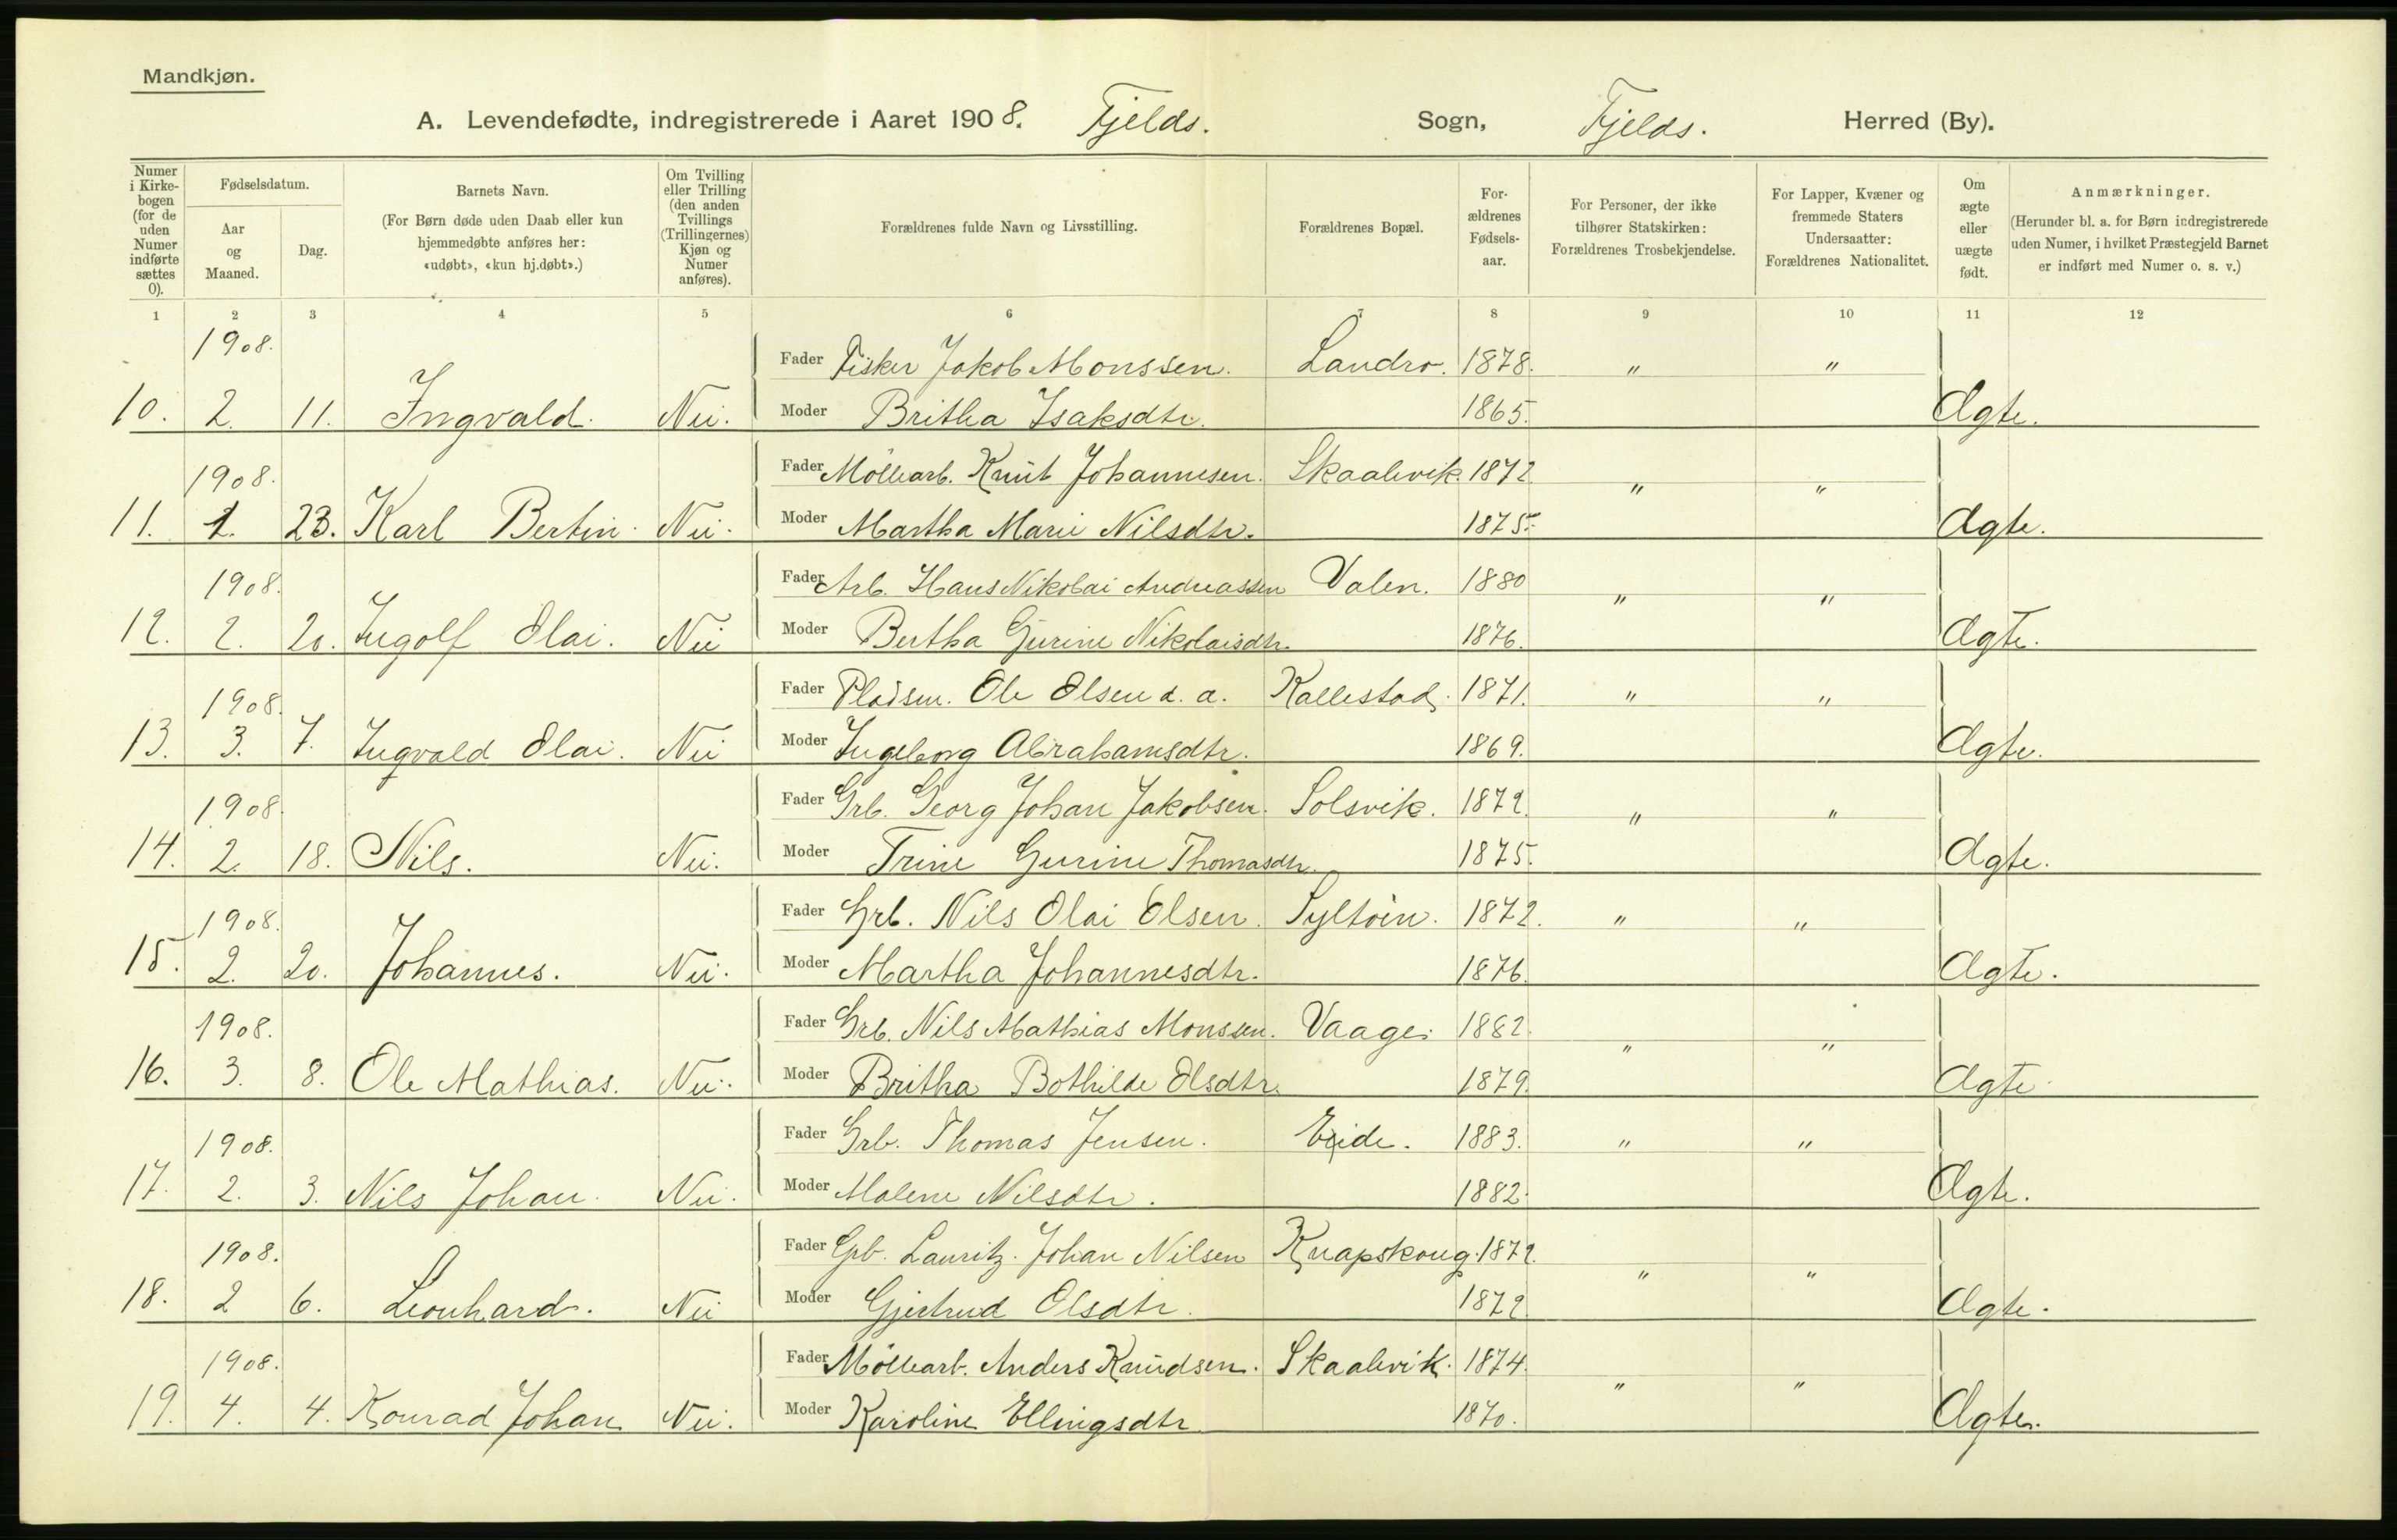 Mandkjøn.
A. Levendefødte, indregistrerede i Aaret 1908. Fjelds. Sogn, Fjelds. Herred (By).
Numer i Kirkebogen (for de uden Numer indførte sættes 0).
Fødselsdatum.
Aar og Maaned.
Dag.
Barnets Navn.
(For Børn døde uden Daab eller kun hjemmedøbte anføres her: «udøbt», «kun hj.døbt».)
Om Tvilling eller Trilling (den anden Tvillings (Trillingernes) Kjøn og Numer anføres).
Forældrenes fulde Navn og Livsstilling.
Forældrenes Bopæl.
For-ældrenes Fødsels-aar.
For Personer, der ikke tilhører Statskirken: Forældrenes Trosbekjendelse.
For Lapper, Kvæner og fremmede Staters Undersaatter: Forældrenes Nationalitet.
Om ægte eller uægte født.
Anmærkninger.
(Herunder bl. a. for Børn indregistrerede uden Numer, i hvilket Præstegjeld Barnet er indført med Numer o. s. v.)
1 2 3 4 5 6 7 8 9 10 11 12
1908. Fader Fisker Jakob Monssen. Landro. 1878. " "
10. 2. 11. Ingvald. Nei. Moder Britha Isaksdtr. 1865. Ægte.
1908. Fader Möllearb. Knut Johannesen. Skaalevik. 1872. " "
11. 1. 23. Karl Bertin. Nei. Moder Martha Marie Nilsdtr. 1875. Ægte.
1908. Fader Arb. Hans Nikolai Andreassen Valen. 1880 " "
12. 2. 20. Ingolf Olai. Nei Moder Bertha Gurine Nikolaisdtr. 1876. Ægte.
1908. Fader Pladsm. Ole Olsen d. a. Kallestad. 1871. " "
13. 3. 7. Ingvald Olai. Nei Moder Ingeborg Abrahamsdtr. 1869. Ægte.
1908. Fader Grb. Georg Johan Jakobsen. Solsvik. 1872. " "
14. 2. 18. Nils. Nei. Moder Trine Gurine Thomasdtr. 1875. Ægte.
1908. Fader Grb. Nils Olai Olsen. Syltöin. 1872. " "
15. 2. 20. Johannes. Nei. Moder Martha Johannesdtr. 1876. Ægte.
1908. Fader Grb. Nils Mathias Monssen. Vaage. 1882. " "
16. 3. 8. Ole Mathias. Nei. Moder Britha Bothilde Olsdtr. 1879. Ægte.
1908. Fader Grb. Thomas Jensen. Eide. 1883. " "
17. 2. 3. Nils Johan. Nei. Moder Malene Nilsdtr. 1882. Ægte.
1908. Fader Grb. Lauritz Johan Nilsen Knapskoug. 1872. " "
18. 2 6. Leonhard. Nei Moder Gjertrud Olsdtr. 1872. Ægte.
1908. Fader Möllearb. Anders Knudsen. Skaalevik. 1874. " "
19. 4. 4. Konrad Johan Nei. Moder Karoline Ellingsdtr 1870. Ægte.